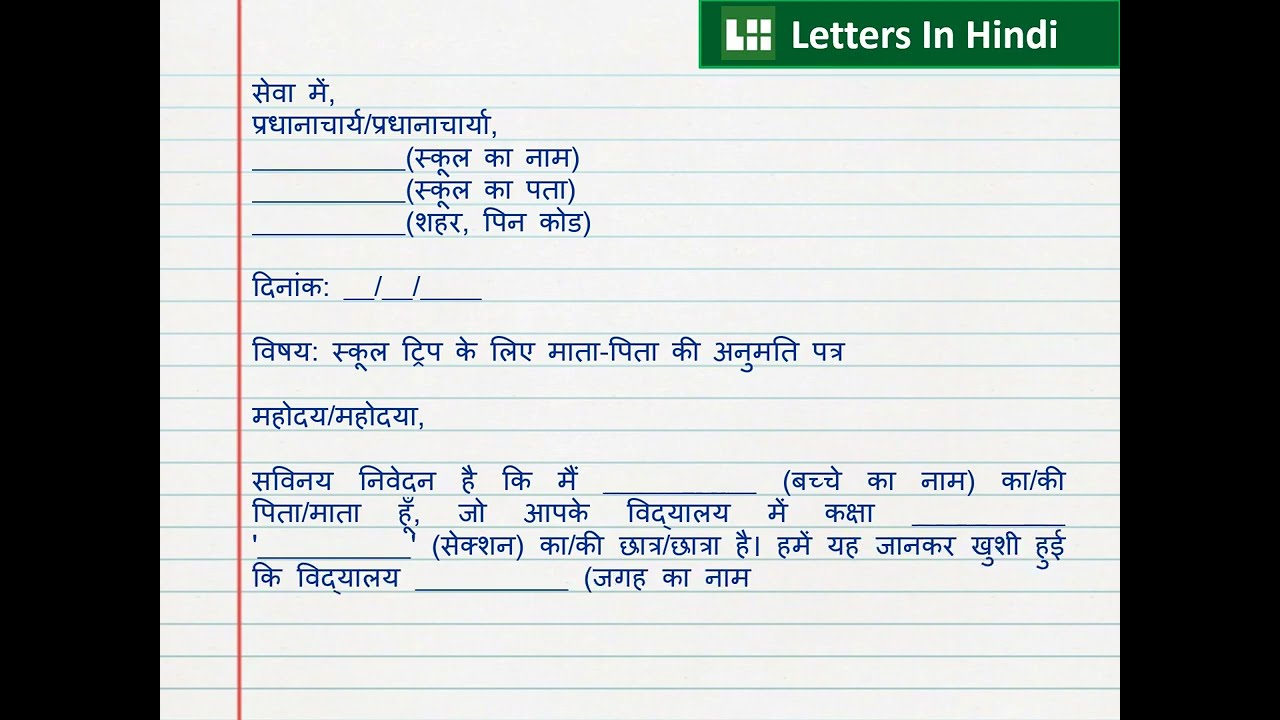 Letters In Hindi
सेवा में,
प्रधानाचार्य/प्रधानाचार्या,
__________(स्कूल का नाम)
__________(स्कूल का पता)
__________(शहर, पिन कोड)
दिनांक: __/__/____
विषय: स्कूल ट्रिप के लिए माता-पिता की अनुमति पत्र
महोदय/महोदया,
सविनय निवेदन है कि मैं __________ (बच्चे का नाम) का/की
पिता/माता हूँ, जो आपके विद्यालय में कक्षा __________
'__________' (सेक्शन) का/की छात्र/छात्रा है। हमें यह जानकर खुशी हुई
कि विद्यालय __________ (जगह का नाम